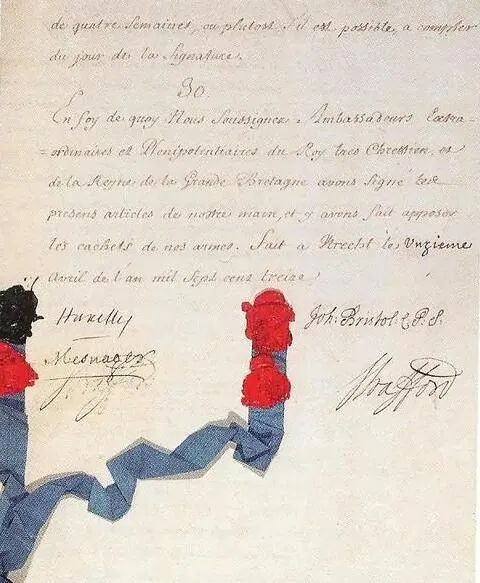 de quatre Semaines, ou plutost s'il est possible, a compter
du jour de la Signature.
30
En foy de quoy Nous Soussignez Ambassadeurs Extra-
-ordinaires et Plenipotentiaires du Roy tres Chrestien, et
de la Reyne de la Grande Bretagne avons signé les
presens articles de nostre main, et y avons fait apposer
les cachets de nos armes. Fait a Utrecht le Unzieme
Avril de l'an mil sept cent treize.
Huxelles
Joh. Bristol. C. P. S.
Mesnager
Strafford